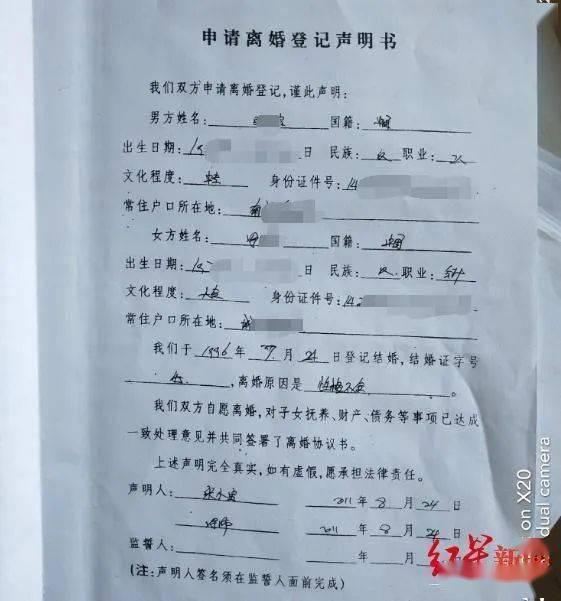 申请离婚登记声明书
我们双方申请离婚登记,谨此声明:
男方姓名: 国籍: 中国
出生日期: 19 日 民族: 汉 职业: 工人
文化程度: 身份证件号: 14
常住户口所在地:
女方姓名: 国籍: 中国
出生日期: 19 日 民族: 汉 职业:
文化程度: 大专 身份证件号: 142
常住户口所在地:
我们于 1996 年 月 24 日登记结婚,结婚证字号
,离婚原因是 性格不合 。
我们双方自愿离婚,对子女抚养、财产、债务等事项已达成
一致处理意见并共同签署了离婚协议书。
上述声明完全真实,如有虚假,愿承担法律责任。
声明人: 2011 年 8 月 24 日
2011 年 8 月 24 日
监誓人: 年 月 日
(注:声明人签名须在监誓人面前完成)
红星新
on X20
dual camera